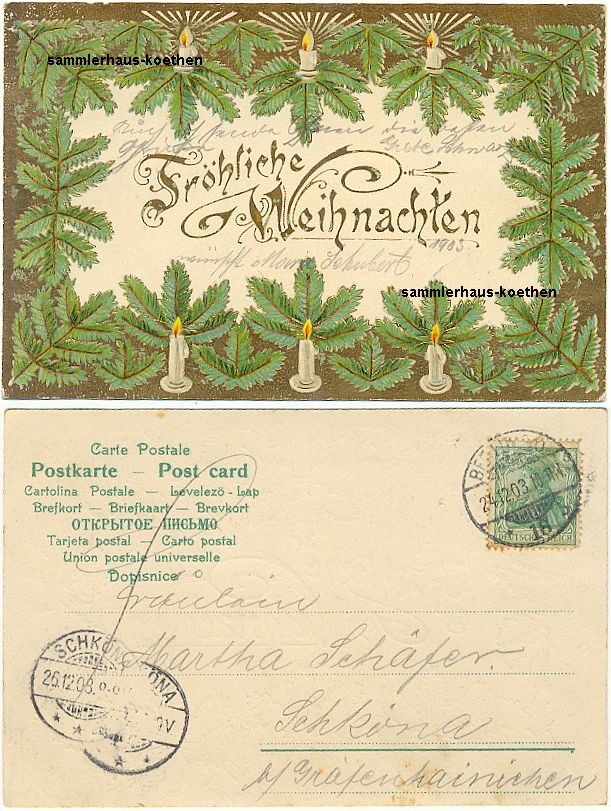 sammlerhaus-koethen
die besten
Grete Schwarz
Fröhliche
Weihnachten
1903.
wünscht Schubert.
sammlerhaus-koethen
Carte Postale
Postkarte — Post card
Cartolina Postale — Levelező-Lap
Brefkort — Briefkaart — Brevkort
ОТКРЫТОЕ ПИСЬМО
Tarjeta postal — Carto postal
Union postale universelle
Dopisnice
24.12.03
16
DEUTSCHES REICH
Fräulein
Martha Schäfer.
SCHKÖNA
25.12.03
Schköna
b/ Gräfenhainichen